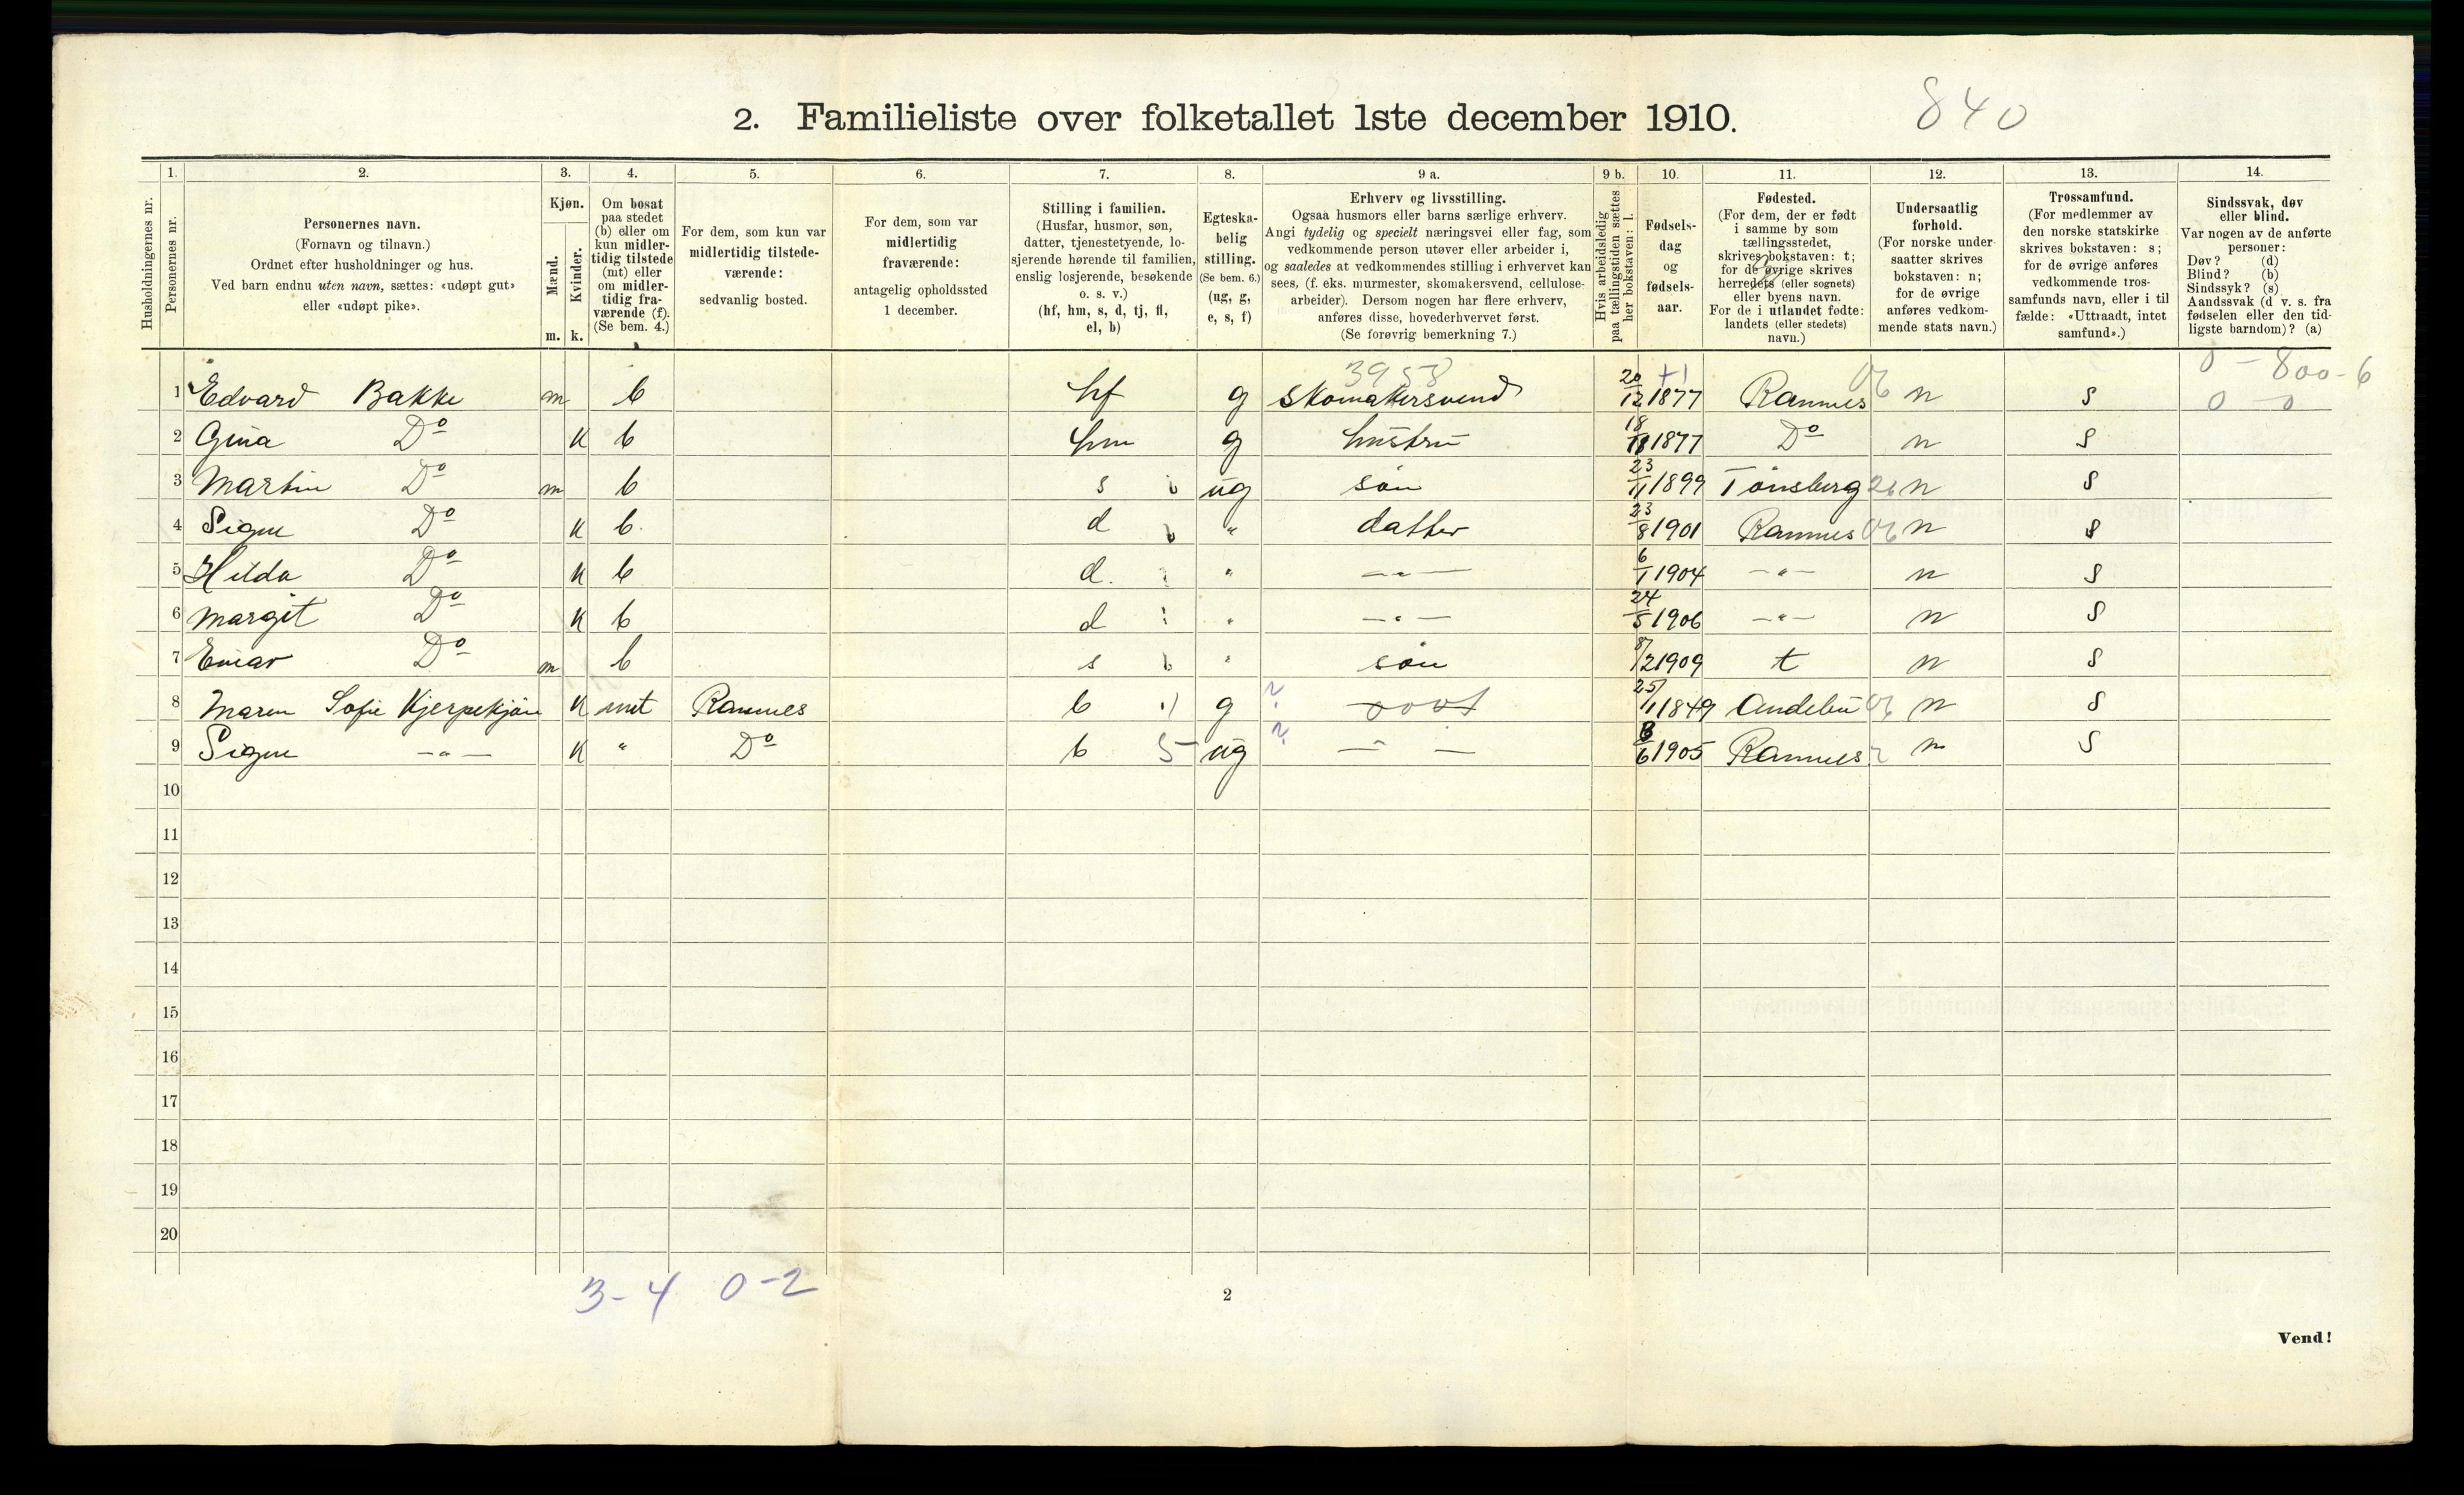 2. Familieliste over folketallet 1ste december 1910. 840
1. 2. 3. 4. 5. 6. 7. 8. 9 a. 9 b. 10. 11. 12. 13. 14.
Husholdningernes nr.
Personernes nr.
Personernes navn.
(Fornavn og tilnavn.)
Ordnet efter husholdninger og hus.
Ved barn endnu uten navn, sættes: «udøpt gut»
eller «udøpt pike».
Kjøn.
Mænd.
Kvinder.
m. k.
Om bosat
paa stedet
(b) eller om
kun midler-
tidig tilstede
(mt) eller
om midler-
tidig fra-
værende (f).
(Se bem. 4.)
For dem, som kun var
midlertidig tilstede-
værende:
sedvanlig bosted.
For dem, som var
midlertidig
fraværende:
antagelig opholdssted
1 december.
Stilling i familien.
(Husfar, husmor, søn,
datter, tjenestetyende, lo-
sjerende hørende til familien,
enslig losjerende, besøkende
o. s. v.)
(hf, hm, s, d, tj, fl,
el, b)
Egteska-
belig
stilling.
(Se bem. 6.)
(ug, g,
e, s, f)
Erhverv og livsstilling.
Ogsaa husmors eller barns særlige erhverv.
Angi tydelig og specielt næringsvei eller fag, som
vedkommende person utøver eller arbeider i,
og saaledes at vedkommendes stilling i erhvervet kan
sees, (f. eks. murmester, skomakersvend, cellulose-
arbeider). Dersom nogen har flere erhverv,
anføres disse, hovederhvervet først.
(Se forøvrig bemerkning 7.)
Hvis arbeidsledig
paa tællingstiden sættes
her bokstaven: l.
Fødsels-
dag
og
fødsels-
aar.
Fødested.
(For dem, der er født
i samme by som
tællingsstedet,
skrives bokstaven: t;
for de øvrige skrives
herredets (eller sognets)
eller byens navn.
For de i utlandet fødte:
landets (eller stedets)
navn.)
Undersaatlig
forhold.
(For norske under-
saatter skrives
bokstaven: n;
for de øvrige
anføres vedkom-
mende stats navn.)
Trossamfund.
(For medlemmer av
den norske statskirke
skrives bokstaven: s;
for de øvrige anføres
vedkommende tros-
samfunds navn, eller i til
fælde: «Uttraadt, intet
samfund».)
Sindssvak, døv
eller blind.
Var nogen av de anførte
personer:
Døv? (d)
Blind? (b)
Sindssyk? (s)
Aandssvak (d v. s. fra
fødselen eller den tid-
ligste barndom)? (a)
3958 +1 0 - 800-6
1 Edvard Bakke m b hf g Skomakersvend 20/12 1877 Ramnes n s 0 0
2 Gina Do k b hm g hustru 18/11 1877 Do n s
3 Martin Do m b s ug søn 23/11 1899 Tønsberg n s
4 Signe Do k b. d " datter 23/8 1901 Ramnes n s
5 Hilda Do k b d. " —"— 6/1 1904 —"— n s
6 Margit Do k b d " —"— 24/5 1906 —"— n s
7 Einar Do m b s " søn 8/2 1909 t n s
8 Maren Sofie Kjerpekjøn k mt Ramnes b g 25/11 1849 Andebu n s
9 Signe —"— k " Do b 5 ug — " — 6/6 1905 Ramnes n s
10
11
12
13
14
15
16
17
18
19
20
3-4 0-2
2
Vend!